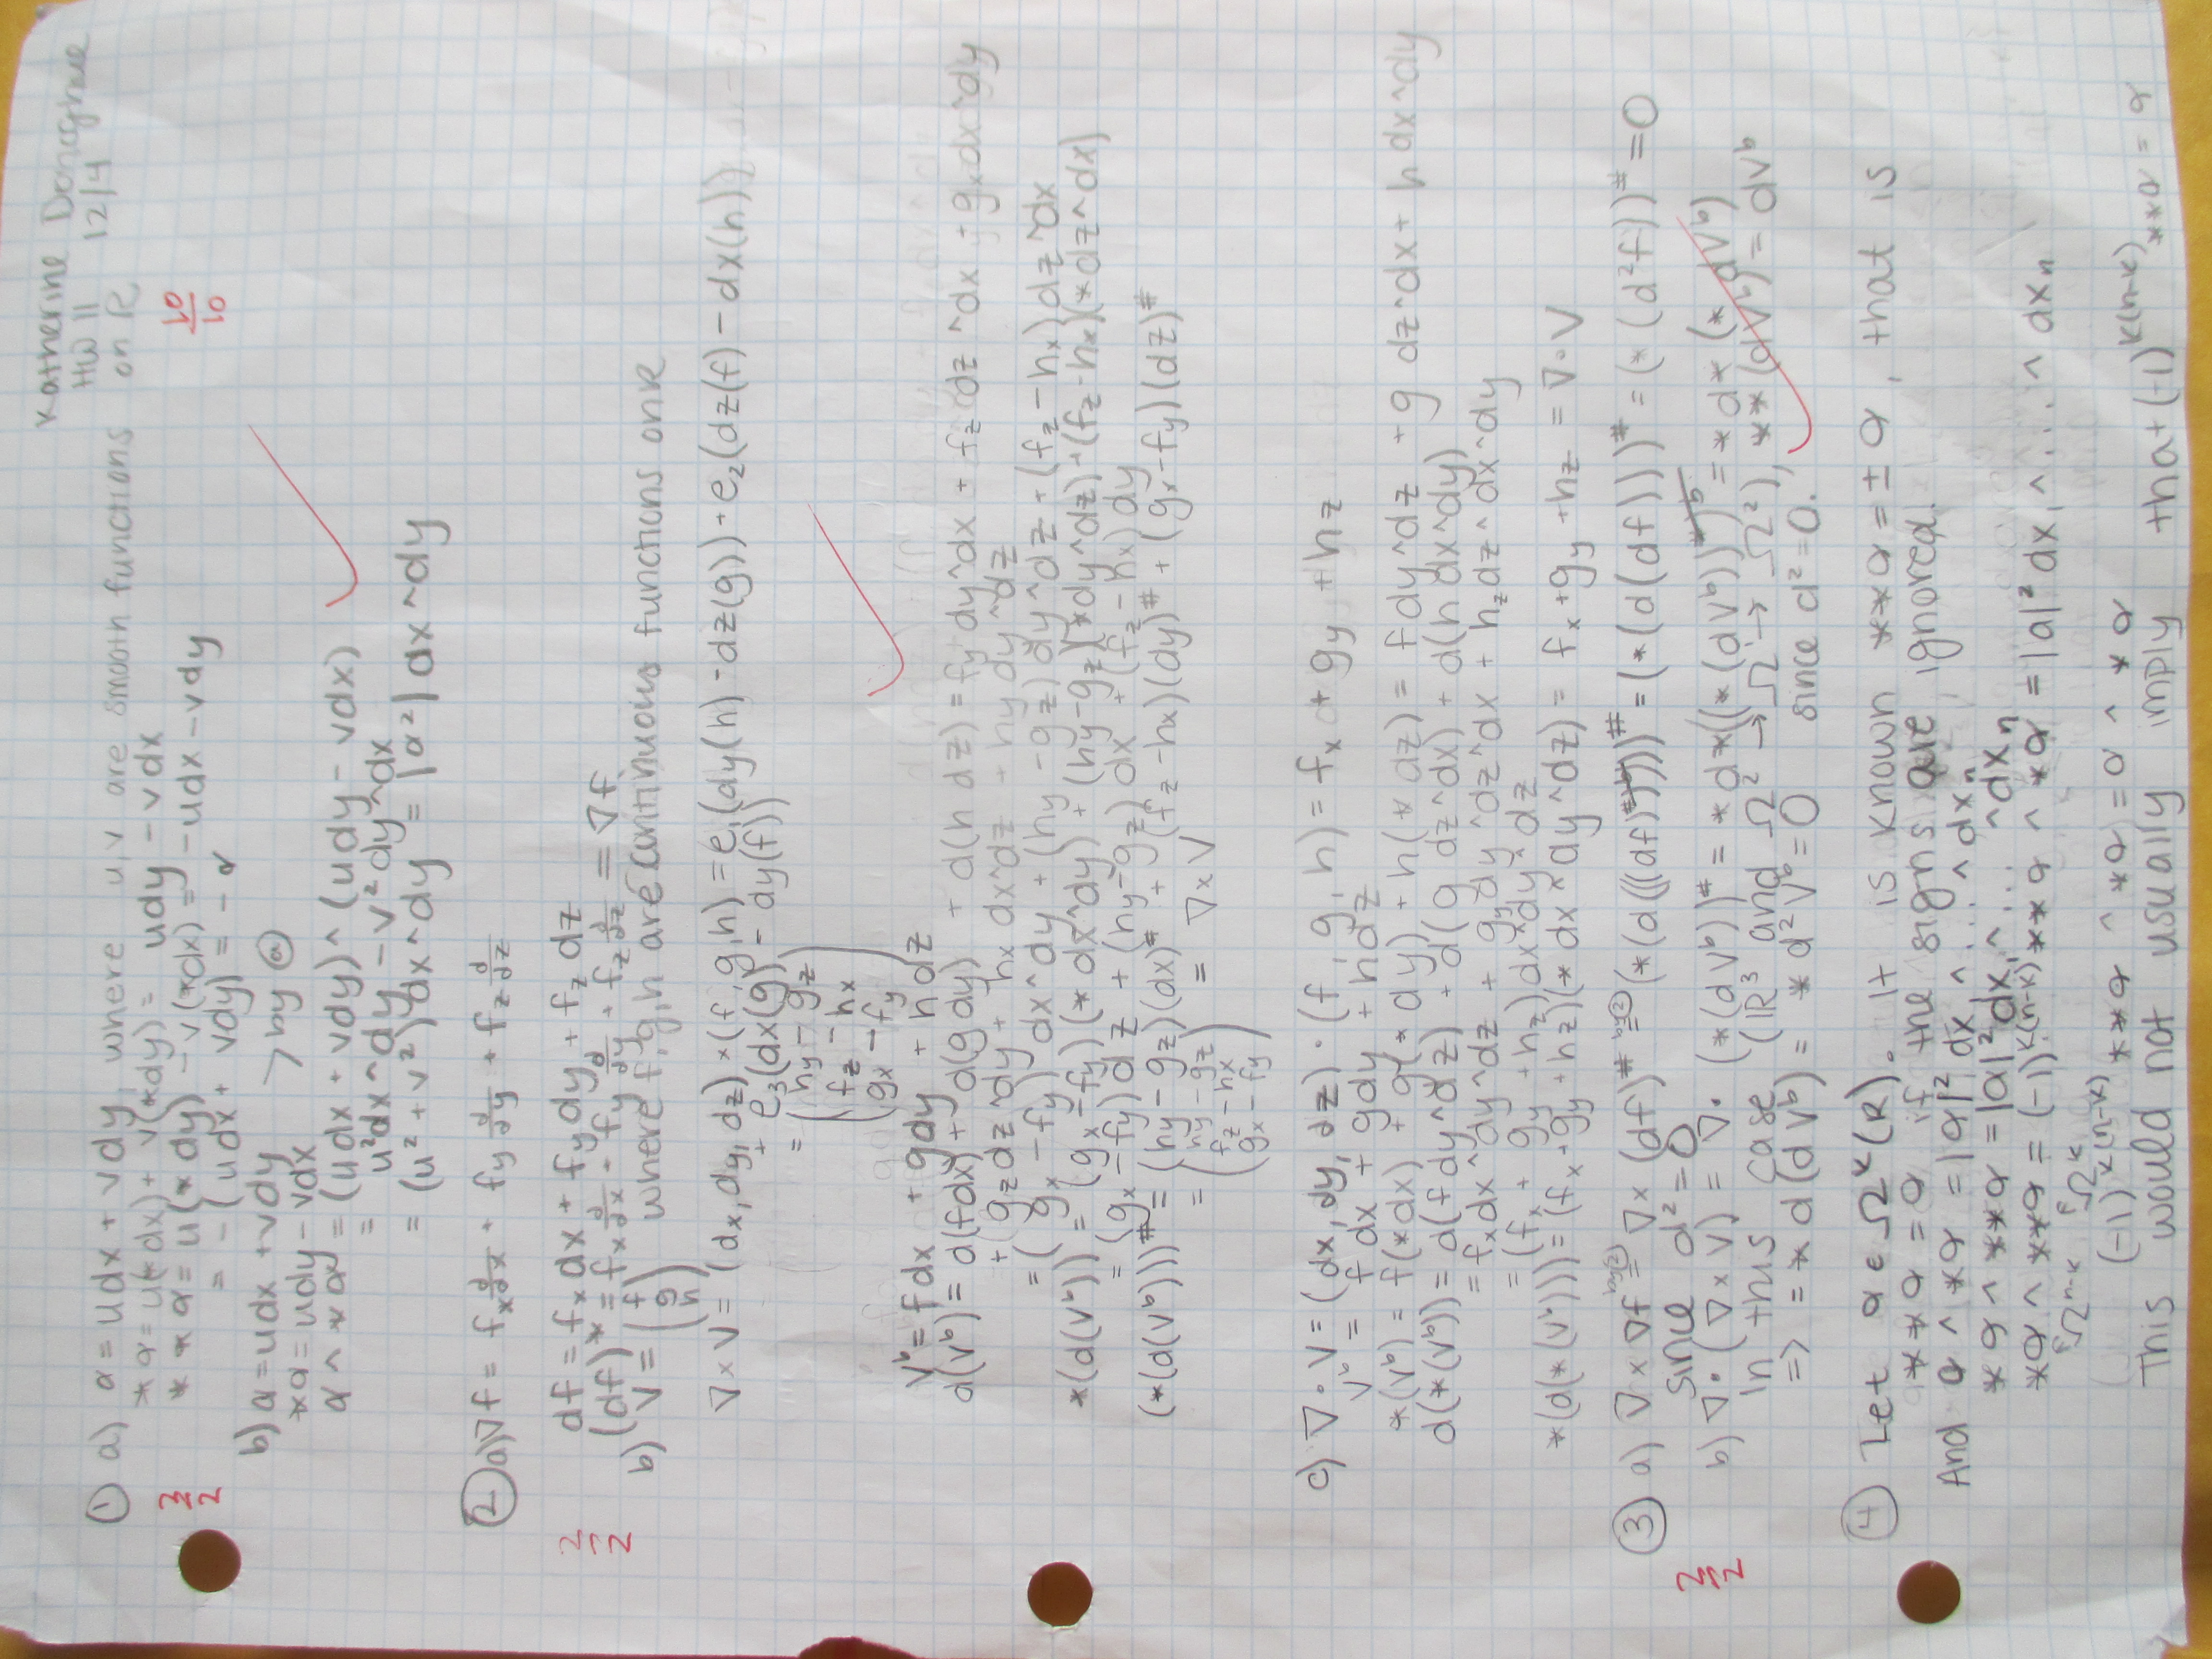 Katherine Donaghue
HW 11 12/4
10/10
① a) α = udx + vdy, where u,v are smooth functions on R
*α = u(*dx) + v(*dy) = udy - vdx
**α = u(*dy) - v(*dx) = -udx - vdy
= -(udx + vdy) = -α
2/2
b) α = udx + vdy > by ⓐ
*α = udy - vdx
α ^ *α = (udx + vdy) ^ (udy - vdx)
= u² dx^dy - v² dy^dx
= (u² + v²) dx^dy = |α²| dx^dy
② a) ∇f = fx d/dx + fy d/dy + fz d/dz
df = fx dx + fy dy + fz dz
(df)# = fx d/dx + fy d/dy + fz d/dz = ∇f
2/2
b) V = (f g h) where f,g,h are continuous functions on R
∇×V = (dx, dy, dz) × (f, g, h) = e₁(dy(h) - dz(g)) + e₂(dz(f) - dx(h))
+ e₃(dx(g) - dy(f))
= (hy - gz
fz - hx
gx - fy)
Vᵇ = fdx + gdy + hdz
d(Vᵇ) = d(fdx) + d(gdy) + d(h dz) = fy dy^dx + fz dz^dx + gx dx^dy
+ gz dz^dy + hx dx^dz + hy dy^dz
= (gx - fy) dx^dy + (hy - gz) dy^dz + (fz - hx) dz^dx
*(d(Vᵇ)) = (gx - fy)(*dx^dy) + (hy - gz)(*dy^dz) + (fz - hx)(*dz^dx)
= (gx - fy) dz + (hy - gz) dx + (fz - hx) dy
(*(d(Vᵇ)))# = (hy - gz)(dx)# + (fz - hx)(dy)# + (gx - fy)(dz)#
= (hy - gz
fz - hx
gx - fy) = ∇×V
c) ∇·V = (dx, dy, dz) · (f, g, h) = fx + gy + hz
Vᵇ = f dx + gdy + hdz
*(Vᵇ) = f(*dx) + g(*dy) + h(*dz) = f dy^dz + g dz^dx + h dx^dy
d(*(Vᵇ)) = d(f dy^dz) + d(g dz^dx) + d(h dx^dy)
= fx dx^dy^dz + gy dy^dz^dx + hz dz^dx^dy
= (fx + gy + hz) dx^dy^dz
*(d(*(Vᵇ))) = (fx + gy + hz)(*dx^dy^dz) = fx + gy + hz = ∇·V
③ a) ∇×∇f = ∇×(df)# = (*(d(((df)#)ᵇ)))# = (*(d(df)))# = (*(d²f))# = 0
since d² = 0
2/2
b) ∇·(∇×V) = ∇·(*(dVᵇ))# = *d*((*(dVᵇ))#)ᵇ = *d*(*dVᵇ)
In this case (R³ and Ω² → Ω¹ → Ω²), **(dVᵇ) = dVᵇ
=> = *d(dVᵇ) = *d²Vᵇ = 0 since d² = 0.
④ Let α ∈ Ωᵏ(R). It is known **α = ±α, that is
**α = α if the signs are ignored.
And α ^ *α = |α|² dx₁ ^ ... ^ dxₙ
*α ^ **α = |α|² dx₁ ^ ... ^ dxₙ
*α ^ **α = (-1)ᵏ⁽ⁿ⁻ᵏ⁾ **α ^ *α = |α|² dx₁ ^ ... ^ dxₙ
∈Ωⁿ⁻ᵏ ∈Ωᵏ
(-1)ᵏ⁽ⁿ⁻ᵏ⁾ **α ^ *α = α ^ *α
This would not usually imply that (-1)ᵏ⁽ⁿ⁻ᵏ⁾ **α = α